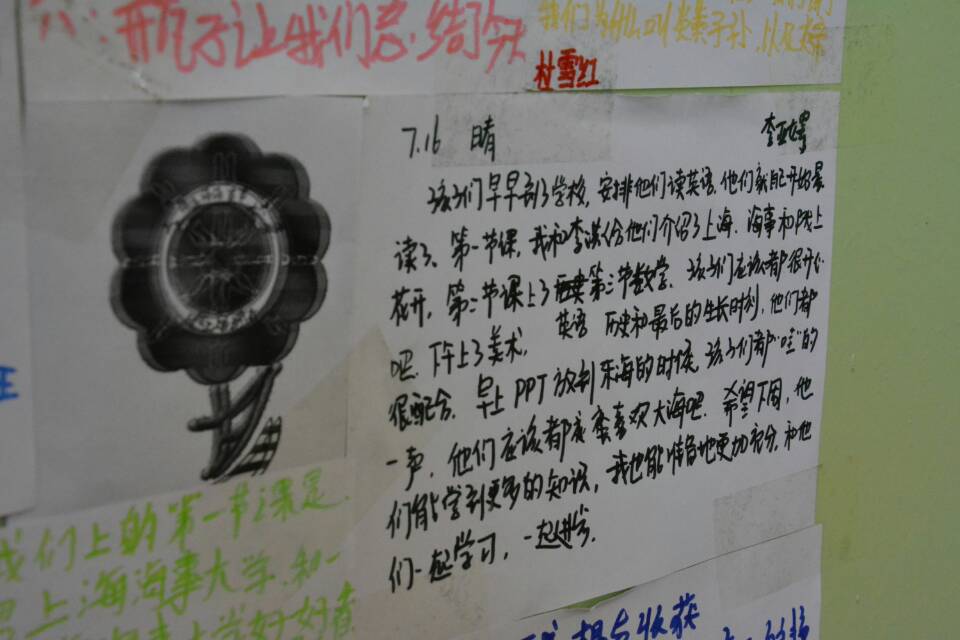 六：瓶子让我们总结今天
我们为什么叫炎黄子孙，以及大宗
杜雪红
7.16 晴
孩子们早早到了学校，安排他们读英语，他们就自己开始晨
读了。第一节课，我和李洪给他们介绍了上海、海事和陇上
花开，第二节课上了 第三节数学。孩子们应该都很开心
吧，下午上了美术， 英语 历史和最后的生长时刻，他们都
很配合。早上PPT放到东海的时候，孩子们都“哇”的
一声，他们应该都蛮喜欢大海吧。希望下周，他
们能学到更多的知识，我也能准备地更加充分，和他
们一起学习，一起进步。
我们上的第一节课是
上海海事大学，和一
收获